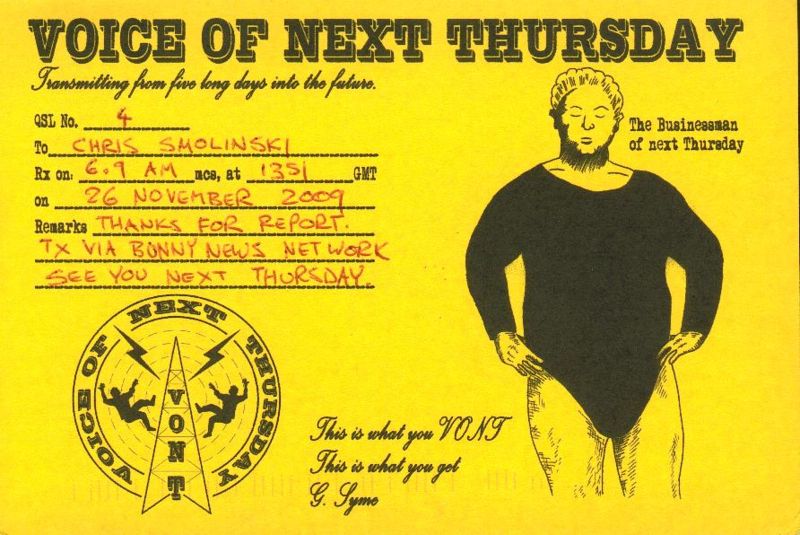 VOICE OF NEXT THURSDAY
Transmitting from five long days into the future.
QSL No. 4
To CHRIS SMOLINSKI
Rx on: 6.9 AM mcs, at 1351 GMT
on 26 NOVEMBER 2009
Remarks THANKS FOR REPORT.
TX VIA BUNNY NEWS NETWORK
SEE YOU NEXT THURSDAY.
The Businessman
of next Thursday
VOICE OF NEXT THURSDAY
VONT
This is what you VONT
This is what you get
G. Syme